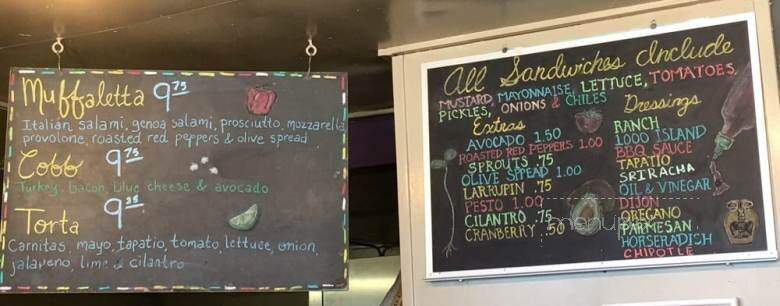 Muffaletta 9.75
Italian salami, genoa salami, prosciutto, mozzarella
provolone, roasted red peppers & olive spread
Cobb 9.75
Turkey, bacon, blue cheese & avocado
Torta
Carnitas, mayo, tapatio, tomato, lettuce, onion,
jalapeno, lime & cilantro
All Sandwiches Include
MUSTARD, MAYONNAISE, LETTUCE, TOMATOES,
PICKLES, ONIONS & CHILES
Extras
AVOCADO 1.50
ROASTED RED PEPPERS 1.00
SPROUTS .75
OLIVE SPREAD 1.00
LARRUPIN .75
PESTO 1.00
CILANTRO .75
CRANBERRY .50
Dressings
RANCH
1000 ISLAND
BBQ SAUCE
TAPATIO
SRIRACHA
OIL & VINEGAR
DIJON
OREGANO
PARMESAN
HORSERADISH
CHIPOTLE